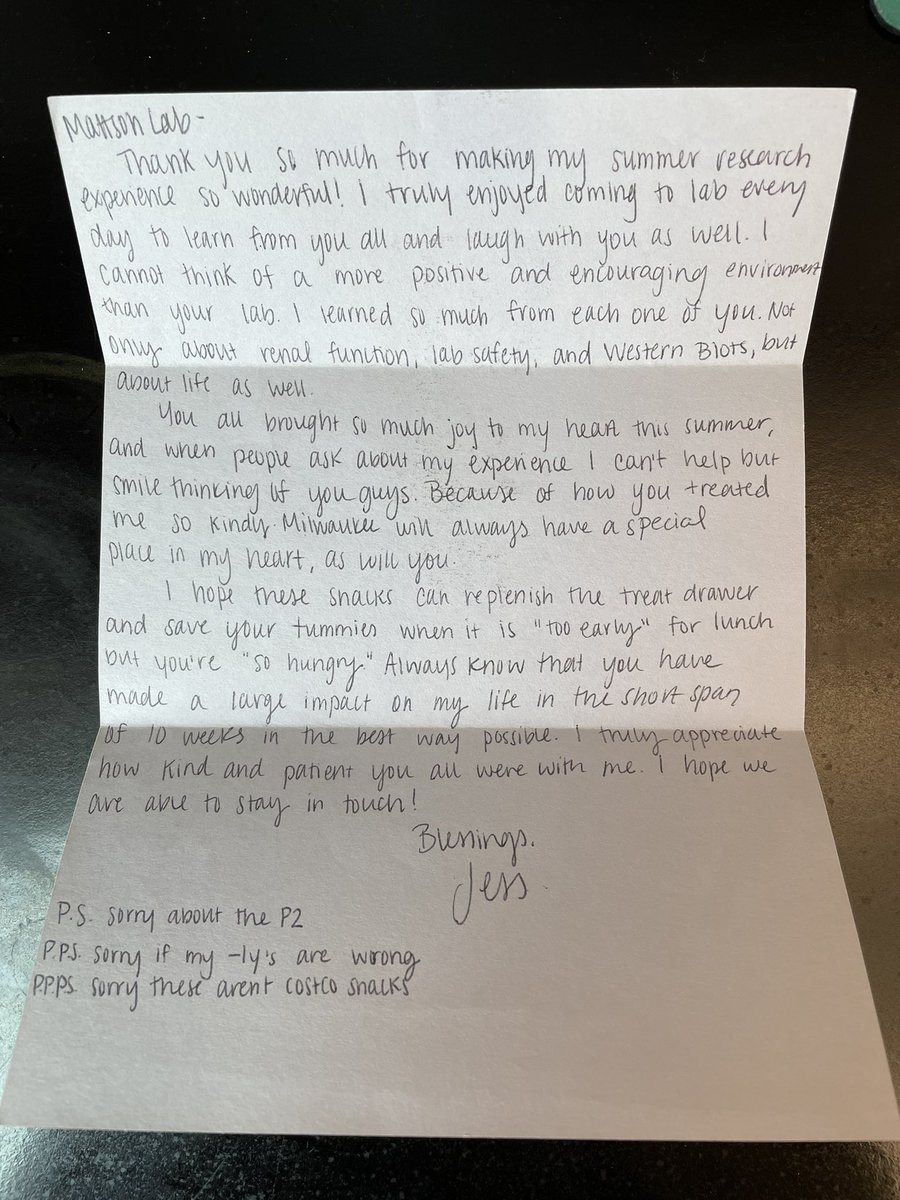 Mattson Lab-
Thank you so much for making my summer research
experience so wonderful! I truly enjoyed coming to lab every
day to learn from you all and laugh with you as well. I
cannot think of a more positive and encouraging environment
than your lab. I learned so much from each one of you. Not
only about renal function, lab safety, and Western Blots, but
about life as well.
You all brought so much joy to my heart this summer,
and when people ask about my experience I can't help but
smile thinking of you guys. Because of how you treated
me so kindly. Milwaukee will always have a special
place in my heart, as will you.
I hope these snacks can replenish the treat drawer
and save your tummies when it is "too early" for lunch
but you're "so hungry." Always know that you have
made a large impact on my life in the short span
of 10 weeks in the best way possible. I truly appreciate
how kind and patient you all were with me. I hope we
are able to stay in touch!
Blessings.
Jess
P.S. sorry about the P2
P.PS. sorry if my -ly's are wrong
P.P.PS. sorry these arent costco snacks